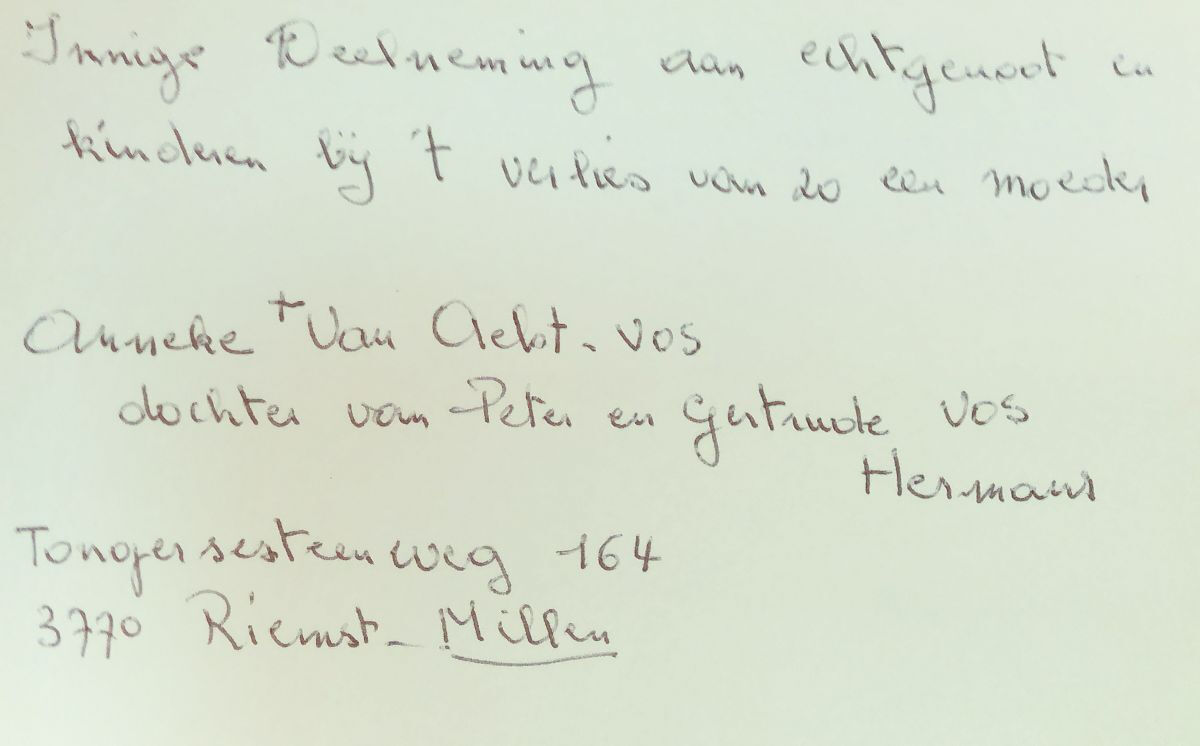 Innige Deelneming aan echtgenoot en
kinderen bij 't verlies van zo een moeder
Anneke + Van Aelst - Vos
dochter van Peter en Gertrude Vos
Hermans
Tongersesteenweg 164
3770 Riemst - Millen